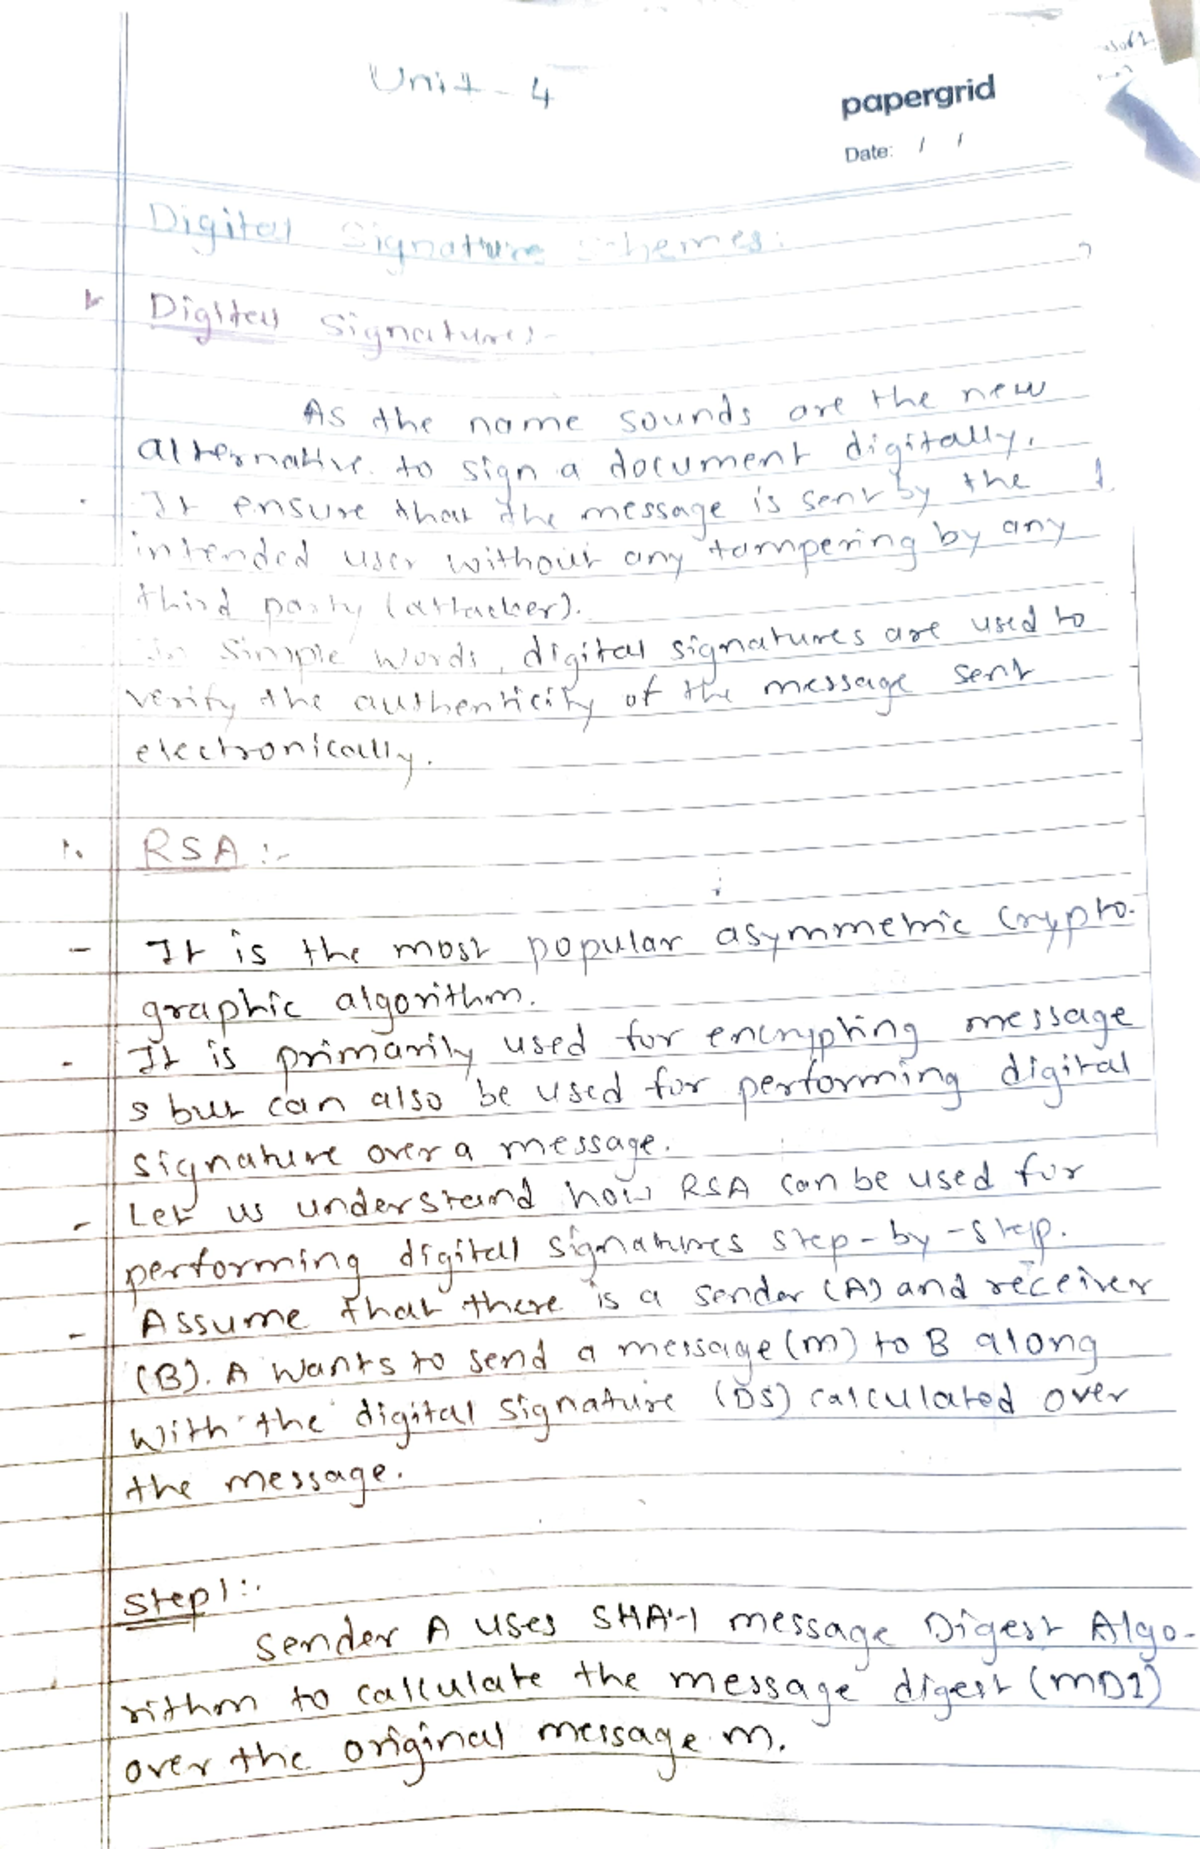 Unit - 4
papergrid
Date: / /
Digital Signature Schemes:
Digital Signature:-
As the name sounds are the new
alternative to sign a document digitally.
It ensure that the message is sent by the
intended user without any tampering by any
third party (attacker).
In Simple words, digital signatures are used to
verify the authenticity of the message sent
electronically.
1. RSA :-
- It is the most popular asymmetric crypto-
graphic algorithm.
- It is primarily used for encrypting message
s but can also be used for performing digital
signature over a message.
- Let us understand how RSA can be used for
performing digital signatures step-by-step.
- Assume that there is a sender (A) and receiver
(B). A wants to send a message (m) to B along
with the digital signature (DS) calculated over
the message.
Step 1:-
Sender A uses SHA-1 message Digest Algo-
rithm to calculate the message digest (MD1)
over the original message m.